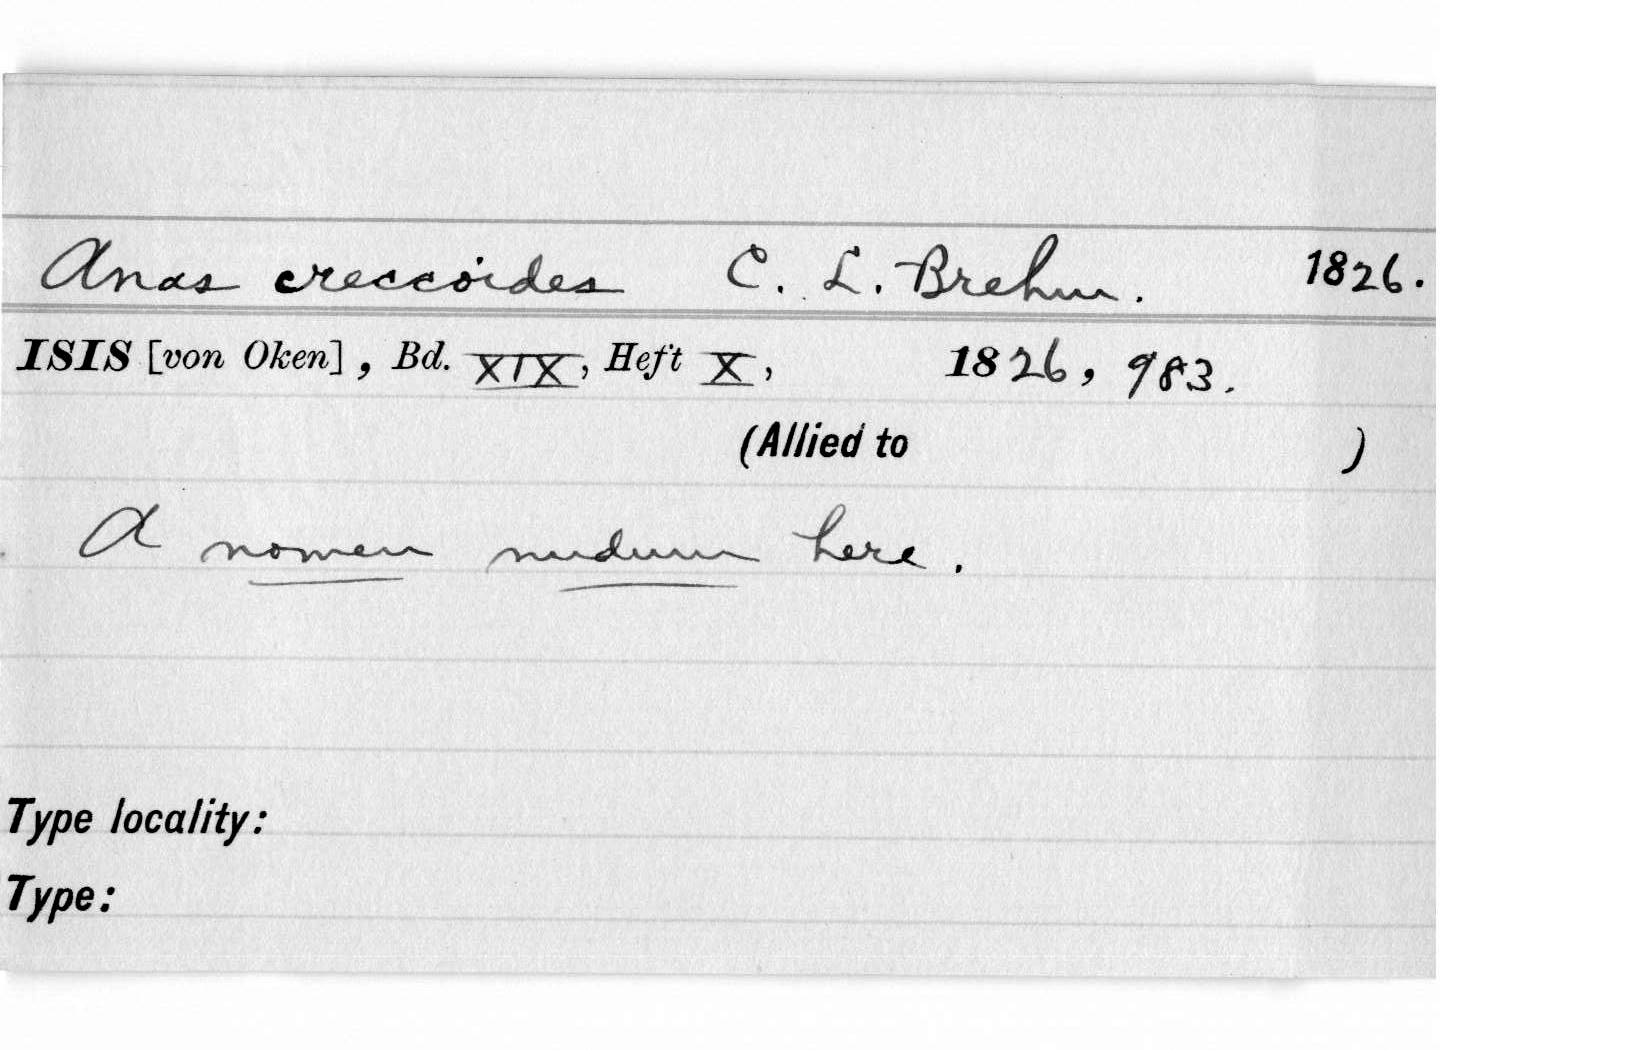 Anas creccoides C. L. Brehm. 1826.
ISIS [von Oken], Bd. XIX, Heft X, 1826, 983.
(Allied to )
A nomen nudum here.
Type locality:
Type: